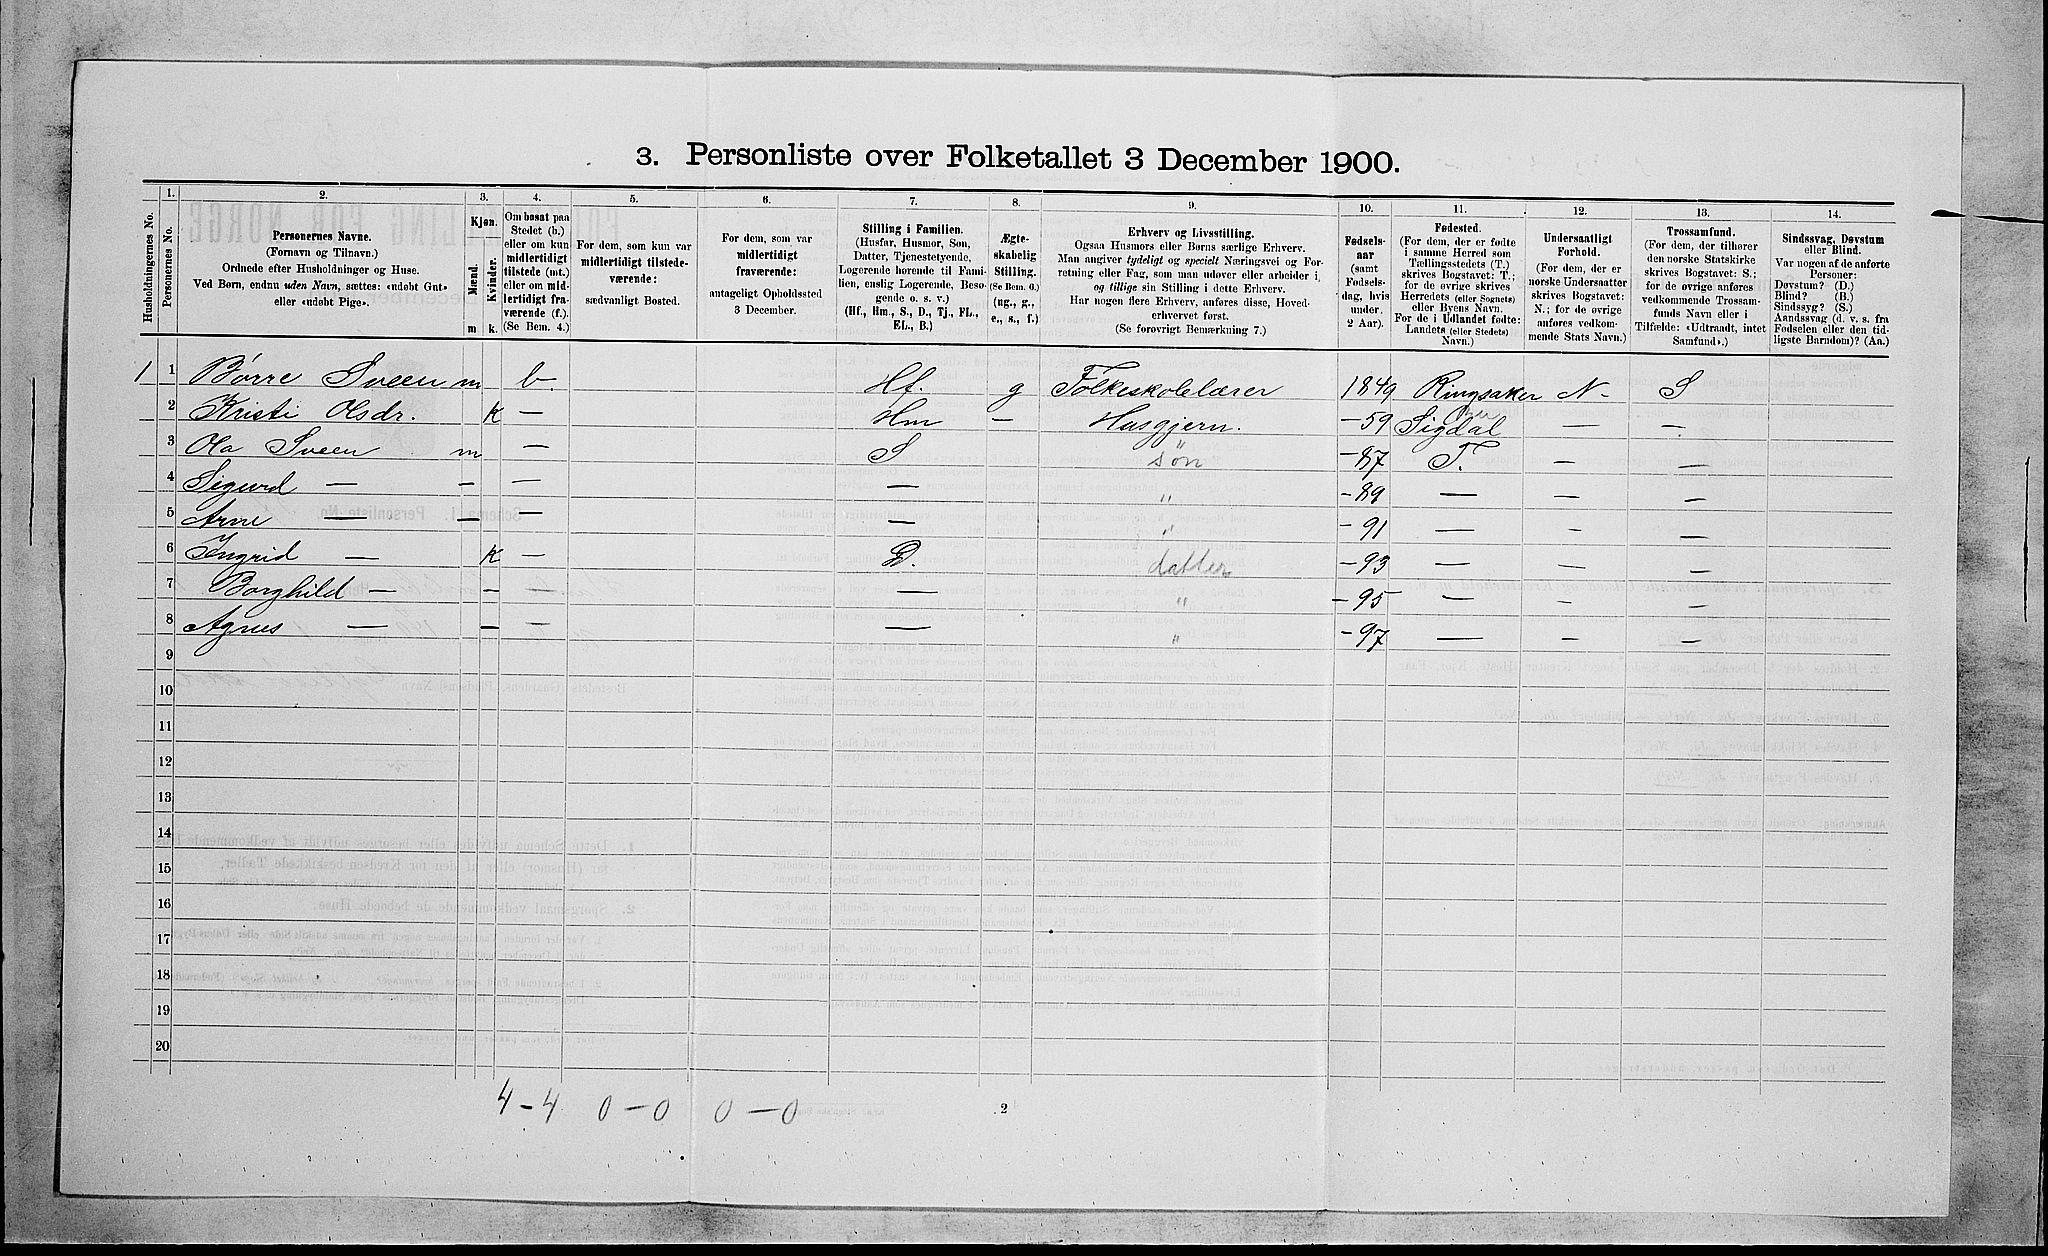 3. Personliste over Folketallet 3 December 1900.
Husholdningernes No.
1.
Personernes No.
2.
Personernes Navne.
(Fornavn og Tilnavn.)
Ordnede efter Husholdninger og Huse.
Ved Børn, endnu uden Navn, sættes: «udøbt Gut»
eller «udøbt Pige».
3.
Kjøn.
Mænd.
Kvinder.
m
k.
4.
Om bosat paa
Stedet (b.)
eller om kun
midlertidigt
tilstede (mt.)
eller om mid-
lertidigt fra-
værende (f.).
(Se Bem. 4.)
5.
For dem, som kun var
midlertidigt tilstede-
værende:
sædvanligt Bosted.
6.
For dem, som var
midlertidigt
fraværende:
antageligt Opholdssted
3 December.
7.
Stilling i Familien.
(Husfar, Husmor, Søn,
Datter, Tjenestetyende,
Logerende hørende til Fami-
lien, enslig Logerende, Besø-
gende o. s. v.)
(Hf., Hm., S., D., Tj., FL.,
EL., B.)
8.
Ægte-
skabelig
Stilling.
(Se Bem. 6.)
(ug., g.,
e., s., f.)
9.
Erhverv og Livsstilling.
Ogsaa Husmors eller Børns særlige Erhverv.
Man angiver tydeligt og specielt Næringsvei og For-
retning eller Fag, som man udøver eller arbeider i,
og tillige sin Stilling i dette Erhverv.
Har nogen flere Erhverv, anføres disse, Hoved-
erhvervet først.
(Se forøvrigt Bemærkning 7.)
10.
Fødsels-
aar
(samt
Fødsels-
dag, hvis
under
2 Aar).
11.
Fødested.
(For dem, der er fødte
i samme Herred som
Tællingsstedets (T.)
skrives Bogstavet: T.;
for de øvrige skrives
Herredets (eller Sognets)
eller Byens Navn.
For de i Udlandet fødte:
Landets (eller Stedets)
Navn.)
12.
Undersaatligt
Forhold.
(For dem, der er
norske Undersaatter
skrives Bogstavet:
N.; for de øvrige
anføres vedkom-
mende Stats Navn.)
13.
Trossamfund.
(For dem, der tilhører
den norske Statskirke
skrives Bogstavet: S.;
for de øvrige anføres
vedkommende Trossam-
funds Navn eller i
Tilfælde: «Udtraadt, intet
Samfund».)
14.
Sindssvag, Døvstum
eller Blind.
Var nogen af de anførte
Personer:
Døvstum? (D.)
Blind? (B.)
Sindssyg? (S.)
Aandssvag (d. v. s. fra
Fødselen eller den tid-
ligste Barndom)? (Aa.)
1 1 Børre Sveen m b. Hf. g Folkeskolelærer 1849 Ringsaker N- S
2 Kristi Olsdr. k — Hm — Husgjern. -59 Sigdal — —
3 Ola Sveen m — S søn -87 T. — —
4 Sigurd — — — — " -89 — — —
5 Arne — — — — " -91 — — —
6 Ingrid — k — D. datter -93 — — —
7 Borghild — - — — " -95 — — —
8 Agnes — — — — " -97 — — —
9
10
11
12
13
14
15
16
17
18
19
20
4-4 0-0 0-0
2